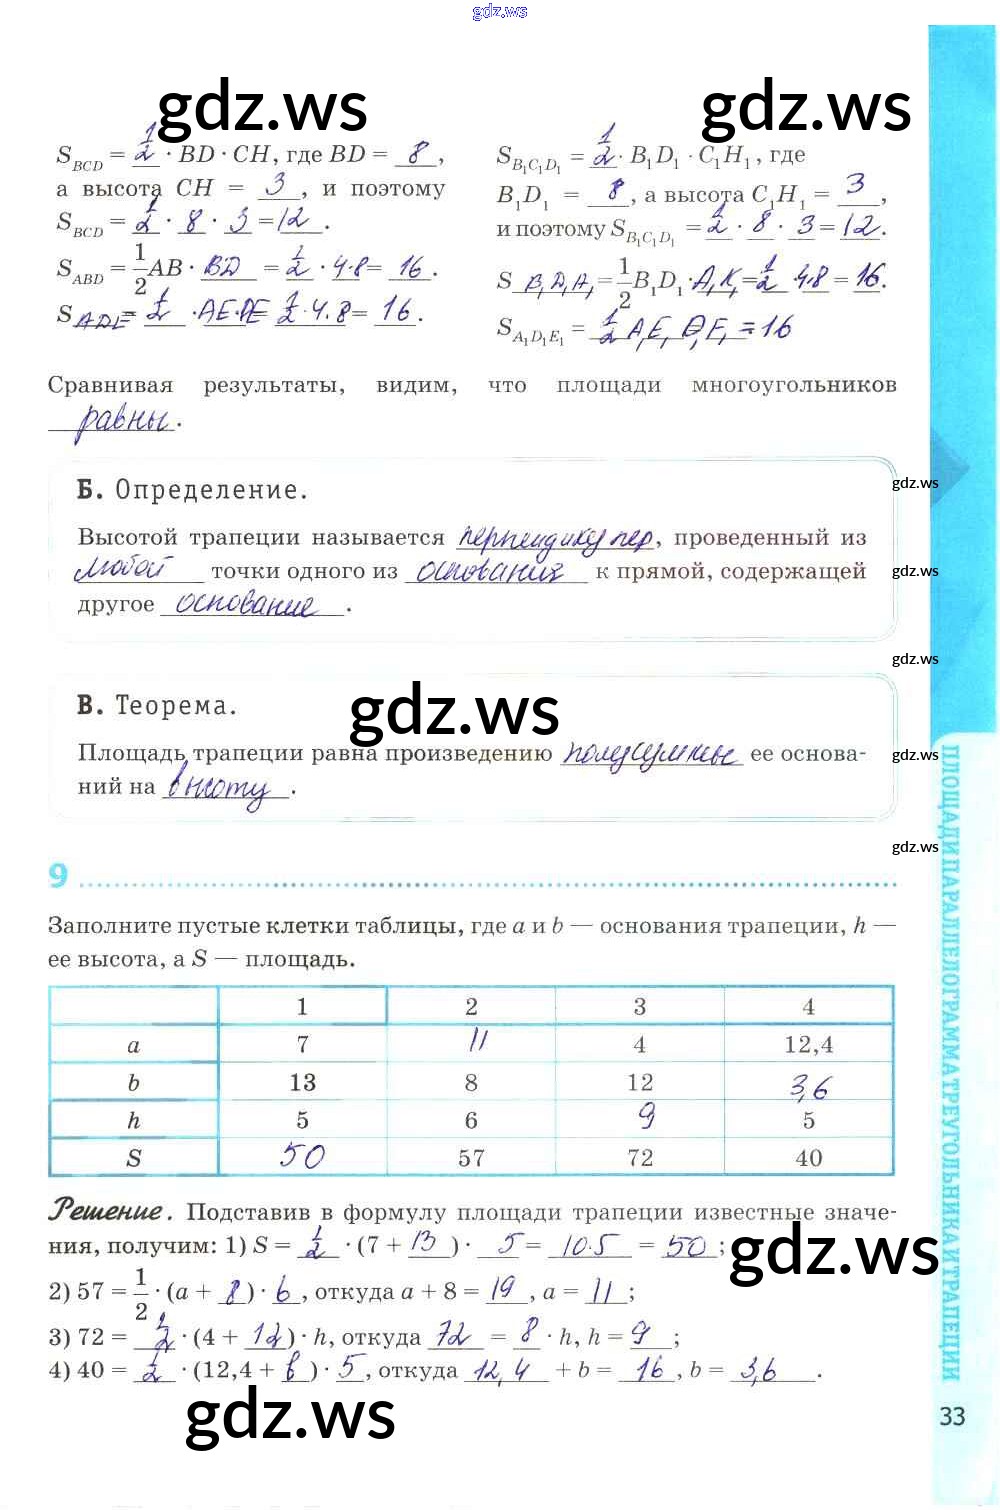 gdz.ws
gdz.ws gdz.ws
S_BCD = 1/2 · BD · CH, где BD = 8,
а высота CH = 3, и поэтому
S_BCD = 1/2 · 8 · 3 = 12.
S_ABD = 1/2 AB · BD = 1/2 · 4·8 = 16.
S_ADE = 1/2 · AE·DE = 1/2·4·8 = 16.
S_B₁C₁D₁ = 1/2 · B₁D₁ · C₁H₁, где
B₁D₁ = 8, а высота C₁H₁ = 3,
и поэтому S_B₁C₁D₁ = 1/2 · 8 · 3 = 12.
S_B₁D₁A₁ = 1/2 B₁D₁ · A₁K₁ = 1/2 4·8 = 16.
S_A₁D₁E₁ = 1/2 A₁E₁ D₁E₁ = 16
Сравнивая результаты, видим, что площади многоугольников
равны.
Б. Определение.
gdz.ws
Высотой трапеции называется перпендикуляр, проведенный из
любой точки одного из основания к прямой, содержащей
gdz.ws
другое основание.
gdz.ws
В. Теорема.
gdz.ws
Площадь трапеции равна произведению полусуммы ее основа-
gdz.ws
ний на высоту.
gdz.ws
9
Заполните пустые клетки таблицы, где a и b — основания трапеции, h —
ее высота, а S — площадь.
1 2 3 4
a 7 11 4 12,4
b 13 8 12 3,6
h 5 6 9 5
S 50 57 72 40
Решение. Подставив в формулу площади трапеции известные значе-
ния, получим: 1) S = 1/2 · (7 + 13) · 5 = 10·5 = 50;
gdz.ws
2) 57 = 1/2 · (a + 8) · 6, откуда a + 8 = 19, a = 11;
3) 72 = 1/2 · (4 + 12) · h, откуда 72 = 8 · h, h = 9;
4) 40 = 1/2 · (12,4 + b) · 5, откуда 12,4 + b = 16, b = 3,6.
gdz.ws
ПЛОЩАДИ ПАРАЛЛЕЛОГРАММА ТРЕУГОЛЬНИКА И ТРАПЕЦИИ
33